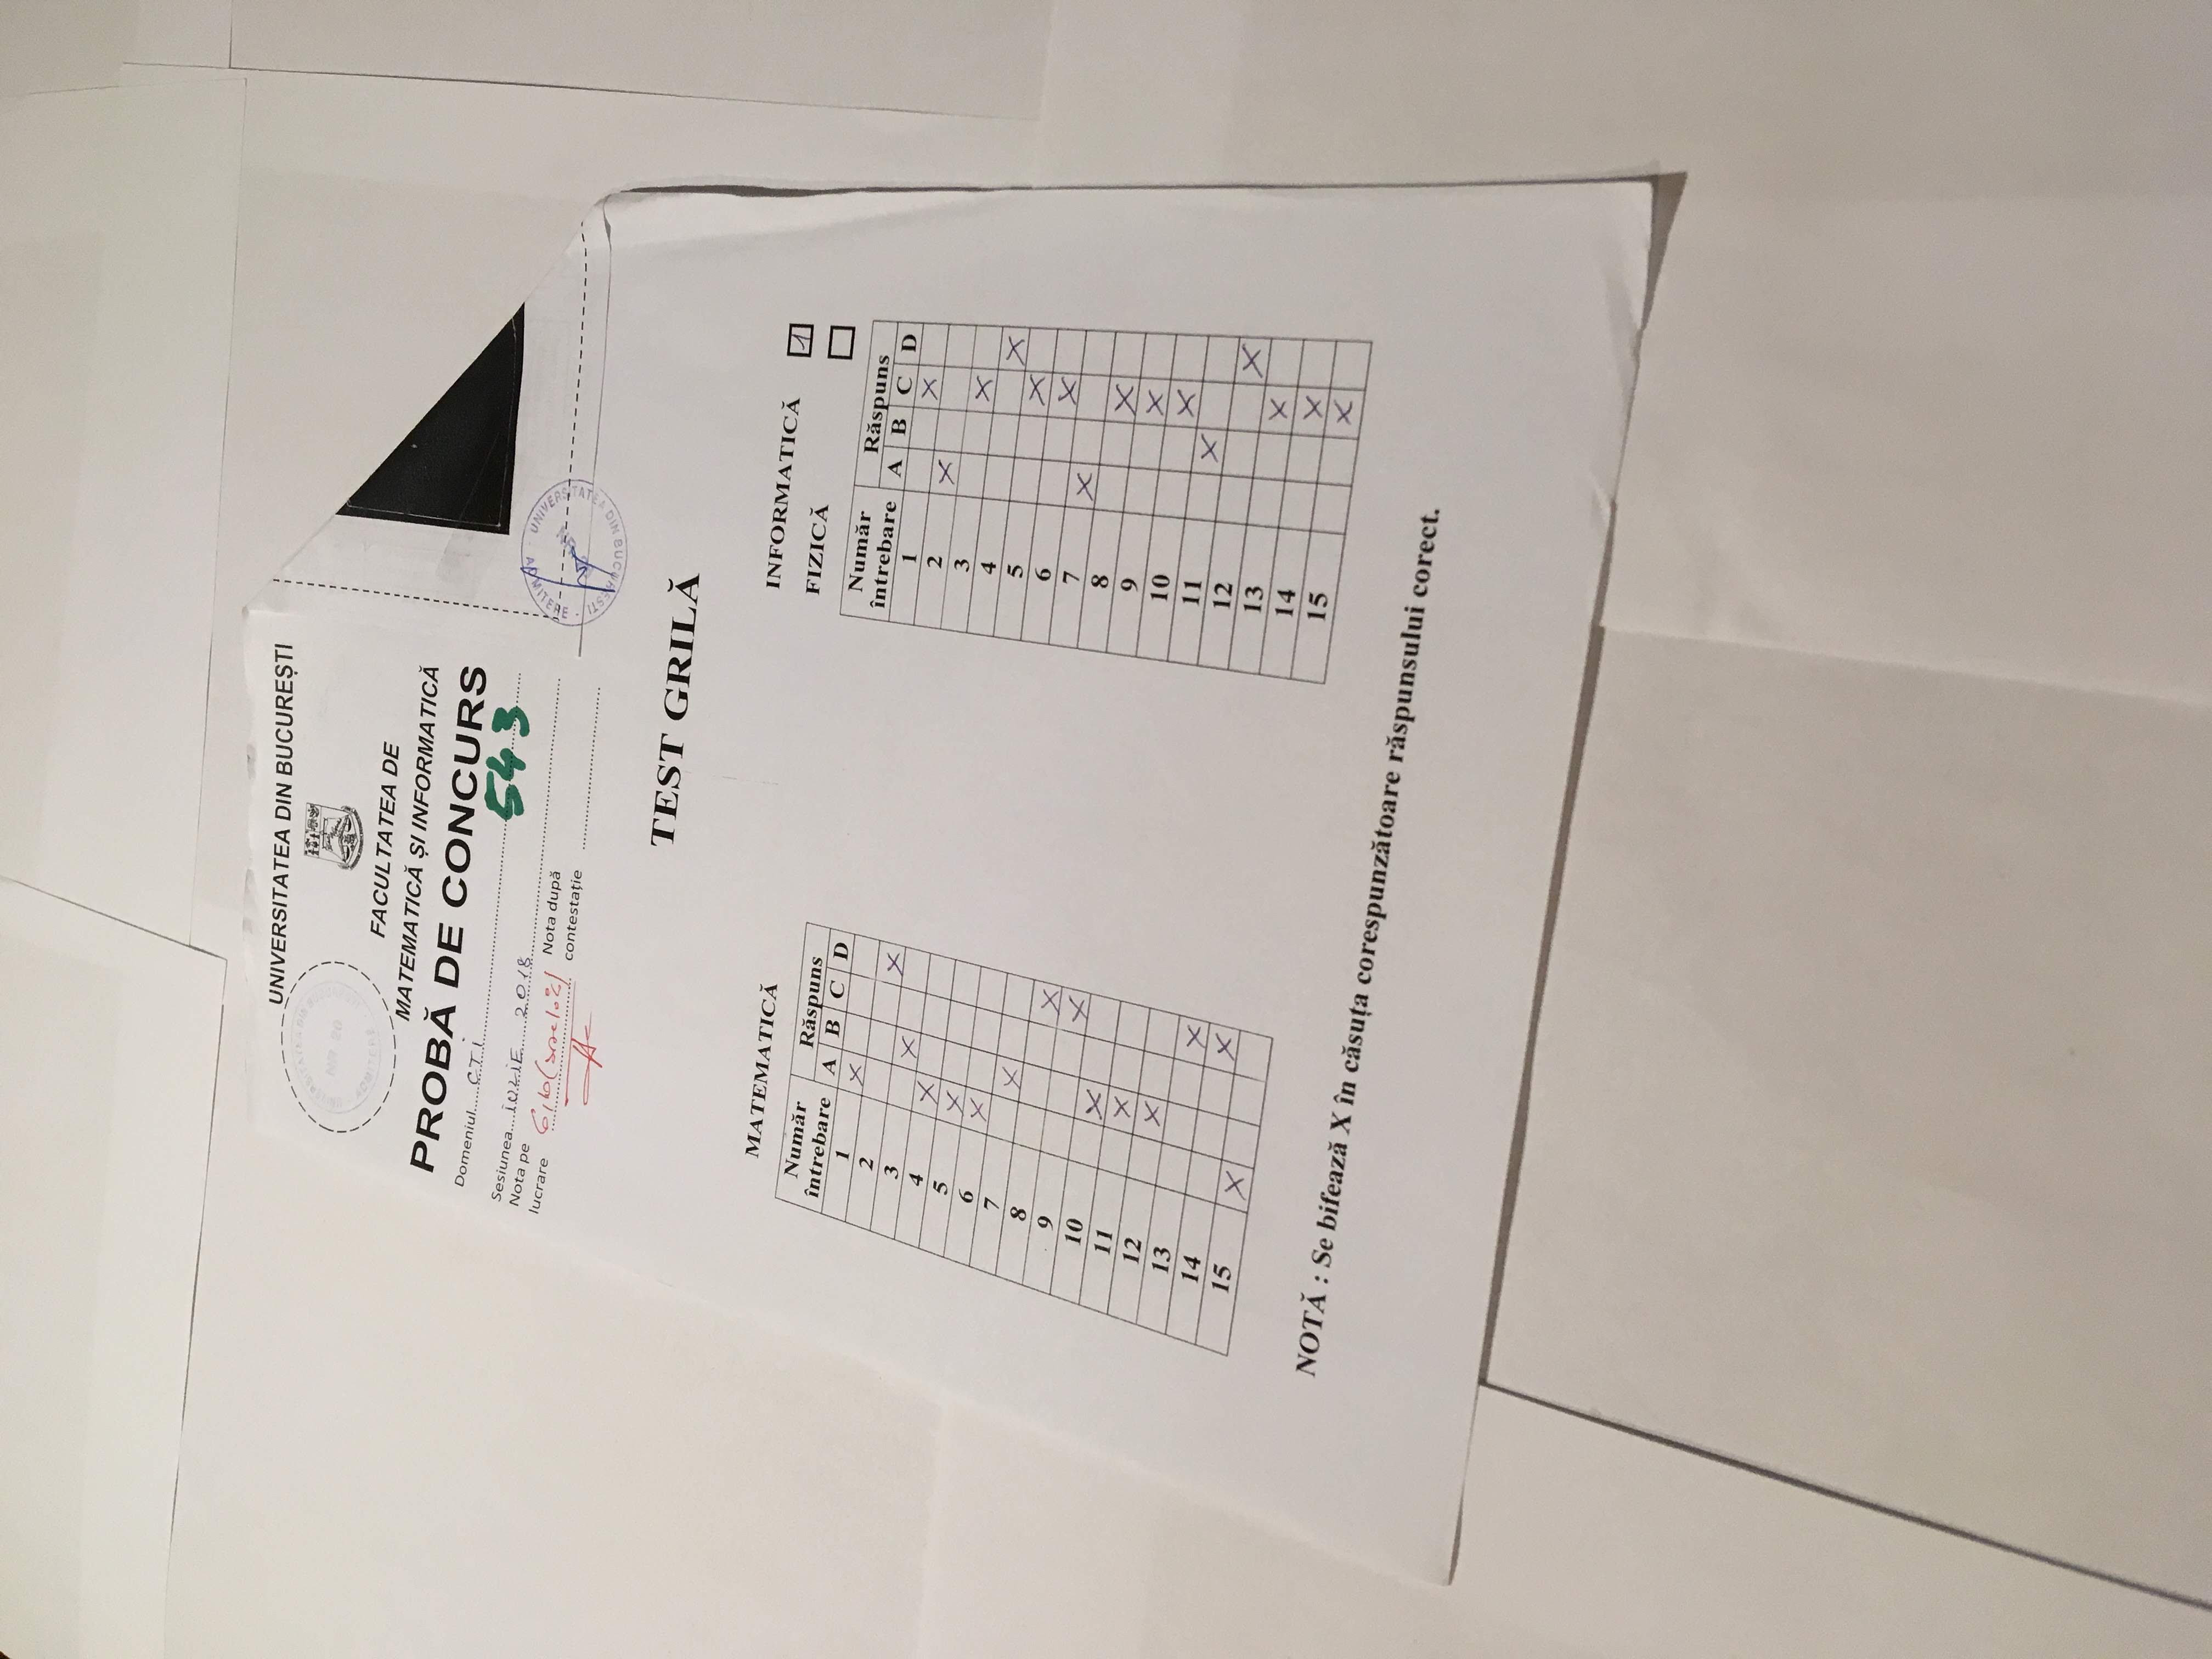 UNIVERSITATEA DIN BUCUREȘTI
UNIVERSITATEA DIN BUCUREȘTI
NR 20
ADMITERE
FACULTATEA DE
MATEMATICĂ ȘI INFORMATICĂ
PROBĂ DE CONCURS
Domeniul CTi
543
Sesiunea iULiE 2018
Nota pe
lucrare
Nota după
contestație
UNIVERSITATEA DIN BUCUREȘTI
ADMITERE
TEST GRILĂ
MATEMATICĂ
Număr
întrebare
Răspuns
A B C D
1 X
2 X
3 X
4 X
5 X
6 X
7 X
8 X
9 X
10 X
11 X
12 X
13 X
14 X
15 X
INFORMATICĂ 1
FIZICĂ
Număr
întrebare
Răspuns
A B C D
1 X
2 X
3 X
4 X
5 X
6 X
7 X
8 X
9 X
10 X
11 X
12 X
13 X
14 X
15 X
NOTĂ : Se bifează X în căsuța corespunzătoare răspunsului corect.